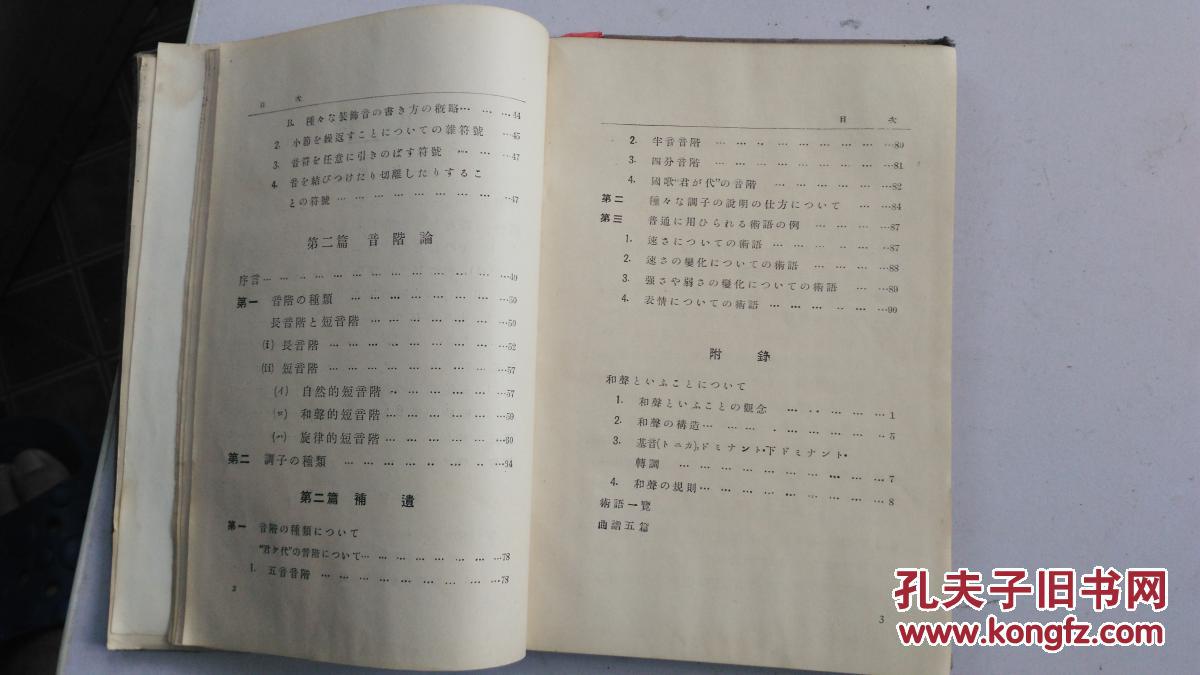 目 次
B. 種々な装飾音の書き方の槪略… … …44
2. 小節を繰返すことについての雜符號 …45
3. 音符を任意に引きのばす符號 … …47
4. 音を結びつけたり切離したりするこ
との符號… … … … … … … …47
第二篇 音階論
序言… … … … … … … … … … …49
第一 音階の種類 … … … … … … …50
長音階と短音階 … … … … … … …50
(i) 長音階 … … … … … … … … …52
(ii) 短音階 … … … … … … … … …57
(イ) 自然的短音階 … … … … … …57
(ロ) 和聲的短音階 … … … … … …59
(ハ) 旋律的短音階 … … … … … …60
第二 調子の種類 … … … … … … …64
第二篇 補遺
第一 音階の種類について
"君が代"の音階について… … … … … …78
1. 五音音階 … … … … … … … …78
2
目 次
2. 半音音階 … … … … … … … …80
3. 四分音階 … … … … … … … …81
4. 國歌"君が代"の音階 … … … … …82
第二 種々な調子の說明の仕方について … …84
第三 普通に用ひられる術語の例 … … … …87
1. 速さについての術語 … … … … …87
2. 速さの變化についての術語 … … …88
3. 强さや弱さの變化についての術語 …89
4. 表情についての術語 … … … … …90
附錄
和聲といふことについて
1. 和聲といふことの觀念 … … … … …1
2. 和聲の構造… … … … … … … …5
3. 基音(トニカ)、ドミナント・下ドミナント・
轉調 … … … … … … … … …7
4. 和聲の規則… … … … … … … …8
術語一覽
曲譜五篇
3
孔夫子旧书网
www.kongfz.com